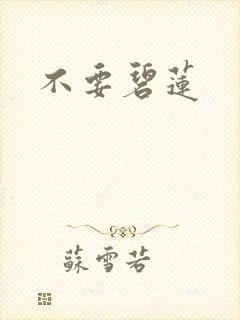 不要碧蓮
蘇雪若